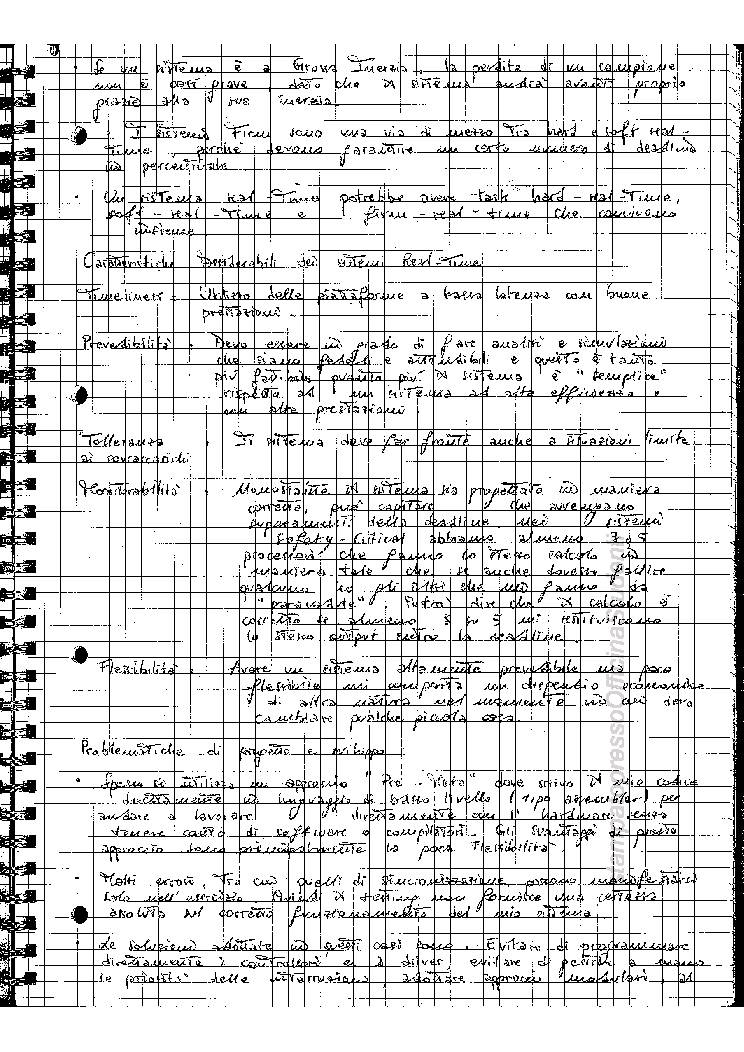 Se un sistema è a Grossa Inerzia, la perdita di un campione
non è così grave, dato che il sistema andrà avanti proprio
grazie alla sua inerzia.
I sistemi Firm sono una via di mezzo tra hard e soft real-
time perché devono garantire un certo numero di deadline
in percentuale
Un sistema real-Time potrebbe avere task hard-real-Time,
soft-real-Time e firm-real-time che convivono
insieme
Caratteristiche Desiderabili dei sistemi Real-Time
Timeliness - Utilizzo delle piattaforme a bassa latenza con buone
prestazioni.
Prevedibilità : Devo essere in grado di fare analisi e simulazioni
che siano fedeli e attendibili e questo è tanto
più fattibile quanto più il sistema è "semplice"
rispetto ad un sistema ad alta efficienza e
con alte prestazioni
Tolleranza : Il sistema deve far fronte anche a situazioni limite
ai sovraccarichi
Monitorabilità : Nonostante il sistema sia progettato in maniera
corretta, può capitare che avvengano
superamenti della deadline nei sistemi
Safety-Critical abbiamo almeno 3 o 5
processori che fanno lo stesso calcolo in
maniera tale che, se anche dovesse fallire
qualcuno ho gli altri che mi fanno da
Potrò dire che il calcolo è
corretto se almeno 3 su 5 mi restituiscono
lo stesso output entro la deadline.
Flessibilità : Avere un sistema altamente prevedibile ma poco
flessibile mi comporta un dispendio economico
e di altra natura nel momento in cui devo
cambiare qualche piccola cosa.
Problematiche di progetto e sviluppo
Spesso si utilizza un approccio dove scrivo il mio codice
direttamente in linguaggio di basso livello (tipo assembler) per
andare a lavorare direttamente con l'hardware senza
tenere conto di software o compilatori. Gli svantaggi di questo
approccio sono principalmente la poca flessibilità.
Molti errori, tra cui quelli di sincronizzazione possono manifestarsi
solo nell'esercizio. Quindi il testing non fornisce una certezza
assoluta sul corretto funzionamento del mio sistema.
Le soluzioni adottate in questi casi sono: Evitare di programmare
direttamente i controllori e i driver, evitare di gestire a mano
le priorità delle interruzioni, adottare approcci modulari, ad